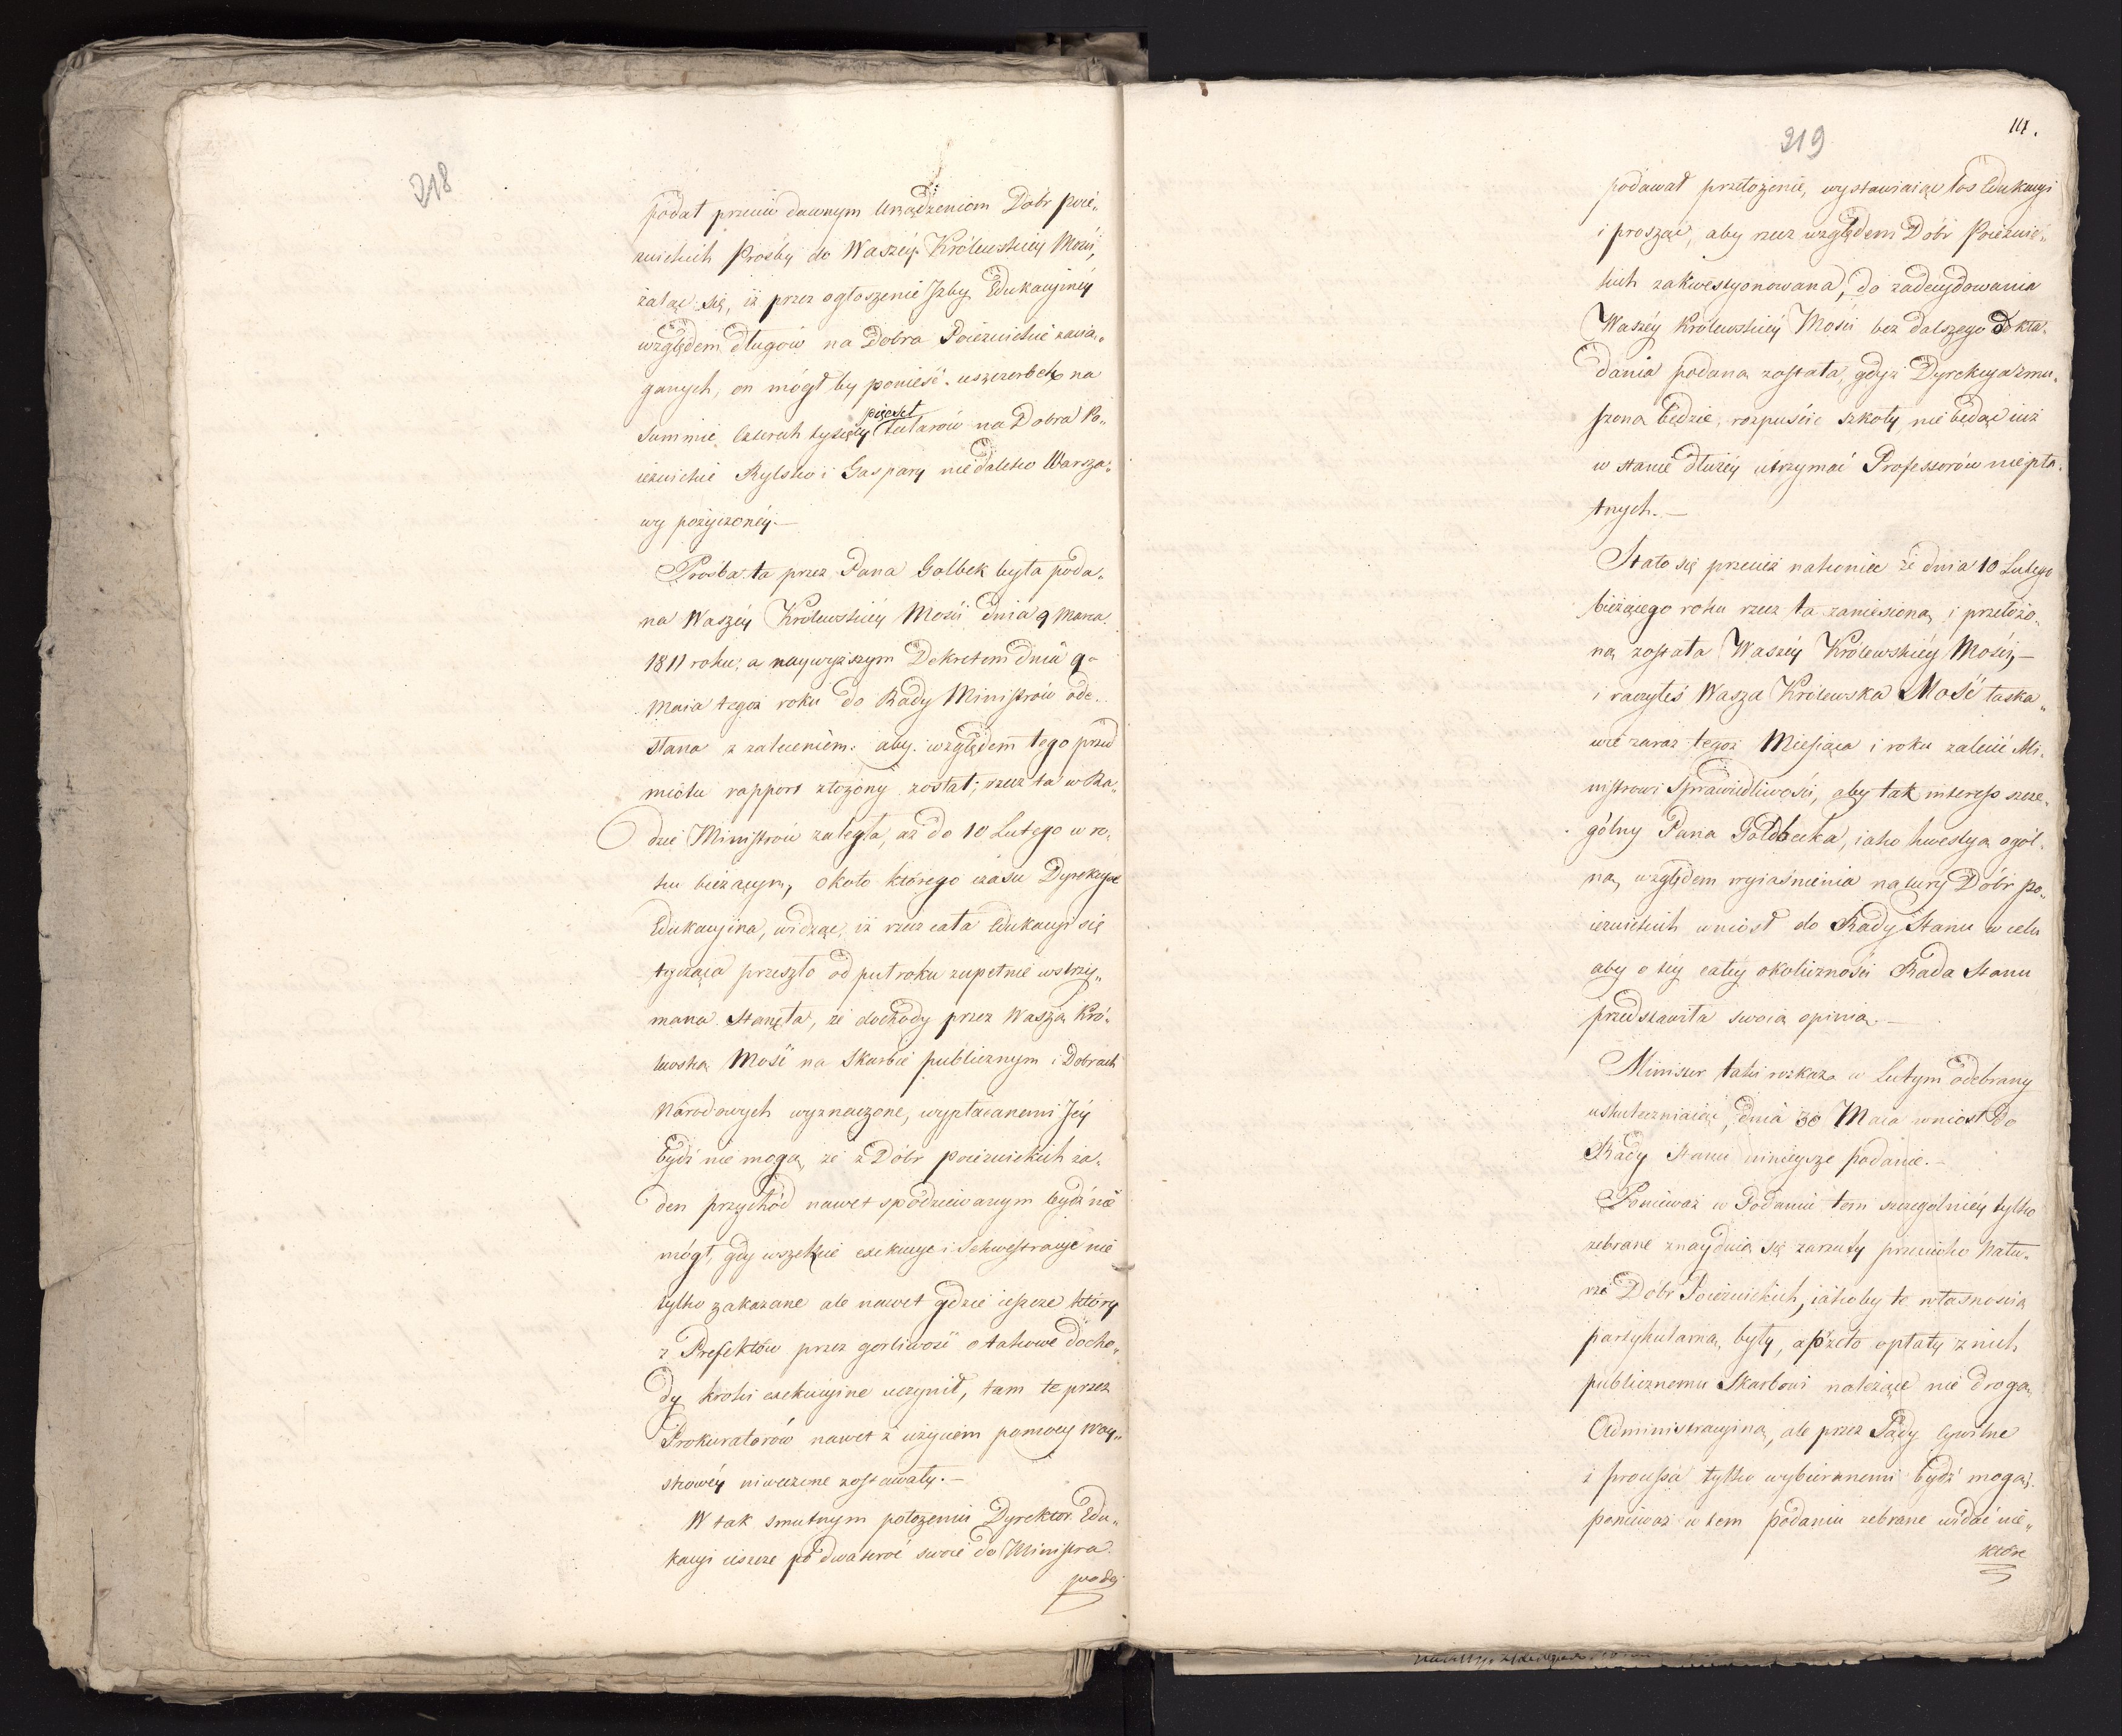 218
podał przeciw dawnym Urządzeniom Dóbr poie„
zuickich Prosby do Waszéy Królewskiey Mości,
żaląc się, iż przez ogłoszenie Izby Edukacyinéy
względem długów na Dobra Poiezuickie zacią„
ganych, on mógł by ponieść uszczerbek na
Summie czterech tysięcy pięćset talarów na Dobra Po„
iezuickie Rylsko i Gaspary niedaleko Warsza„
wy pożyczonéy.—
Prosba ta przez Pana Golbek była poda„
na Waszéy Królewskiéy Mości dnia 9 Marca
1811 roku; a naywyższym Dekretem dnia 9-
Maia tegoż roku do Rady Ministrów ode„
słana z zaleceniem: aby względem tego przed
miotu rapport złożony został; rzecz ta w Ra„
dzie Ministrów zaległa, aż do 10 Lutego w ro„
ku bieżącym, około którego czasu Dyrekcya
Edukacyina, widząc, iż rzecz cała Edukacyi się
tycząca przeszło od pułroku zupełnie wstrzy„
mana Stanęła, że dochody przez Waszą Kró„
lewską Mość na Skarbie publicznym i Dobrach
Narodowych wyznaczone, wypłacanemi Jéy
bydź nie mogą, że z Dóbr poiezuickich ża„
den przychód nawet spodziewanym bydź nie
mógł, gdy wszelkie exekucye i Sekwestracye nie
tylko zakazane ale nawet gdzie ieszcze który
z Prefektów przez gorliwość o takowe docho„
dy kroki exekucyine uczynił, tam te przez
Prokuratorów nawet z użyciem pomocy Woy„
skowéy niweczone zostawały.—
W tak smutnym położeniu Dyrektor Edu„
kacyi ieszcze po dwakroć swoie do Ministra
podaj
219
111.
podawał przełożenie, wystawiaiąc los Edukacyi
i prosząc, aby rzecz względem Dóbr Poiezuic„
kich zakwestyonowana, do zadecydowania
Waszéy Królewskiéy Mości bez dalszego odkła„
dania podana została, gdyż Dyrekcya zmu„
szona będzie, rozpuścić szkoły nie będąc iuż
w stanie dłużéy utrzymać Professorów niepła„
tnych.—
Stało się przecież nakoniec że dnia 10 Lutego
bieżącego roku rzecz ta zaniesioną i przełożo„
ną została Waszéy Królewskiéy Mości,—
i raczyłeś Wasza Królewska Mość łaska„
wie zaraz tegoż Miesiąca i roku zalecić Mi„
nistrowi Sprawiedliwości, aby tak interess szcze„
gólny Pana Goldbecka, iako kwestyą ogól„
ną, względem wyiaśnienia natury Dóbr po„
iezuickich wniósł do Rady Stanu w celu
aby o téy całéy okoliczności Rada Stanu
przedstawiła swoią opinią.—
Minister taki rozkaz w Lutym odebrany
uskuteczniaiąc, dnia 30 Maia wniosł do
Rady Stanu ninieysze podanie.—
Ponieważ w Podaniu tem szczególniéy tylko
zebrane znayduią się zarzuty przeciwko Natu„
rze Dóbr Poiezuickich, iakoby te własnością
partykularną były, a przeto opłaty z nich
publicznemu Skarbowi należące nie drogą
Administracyiną, ale przez Sądy Cywilne
i processa tylko wybieranemi bydź mogą;
ponieważ w tem podaniu zebrane widać nie„
które